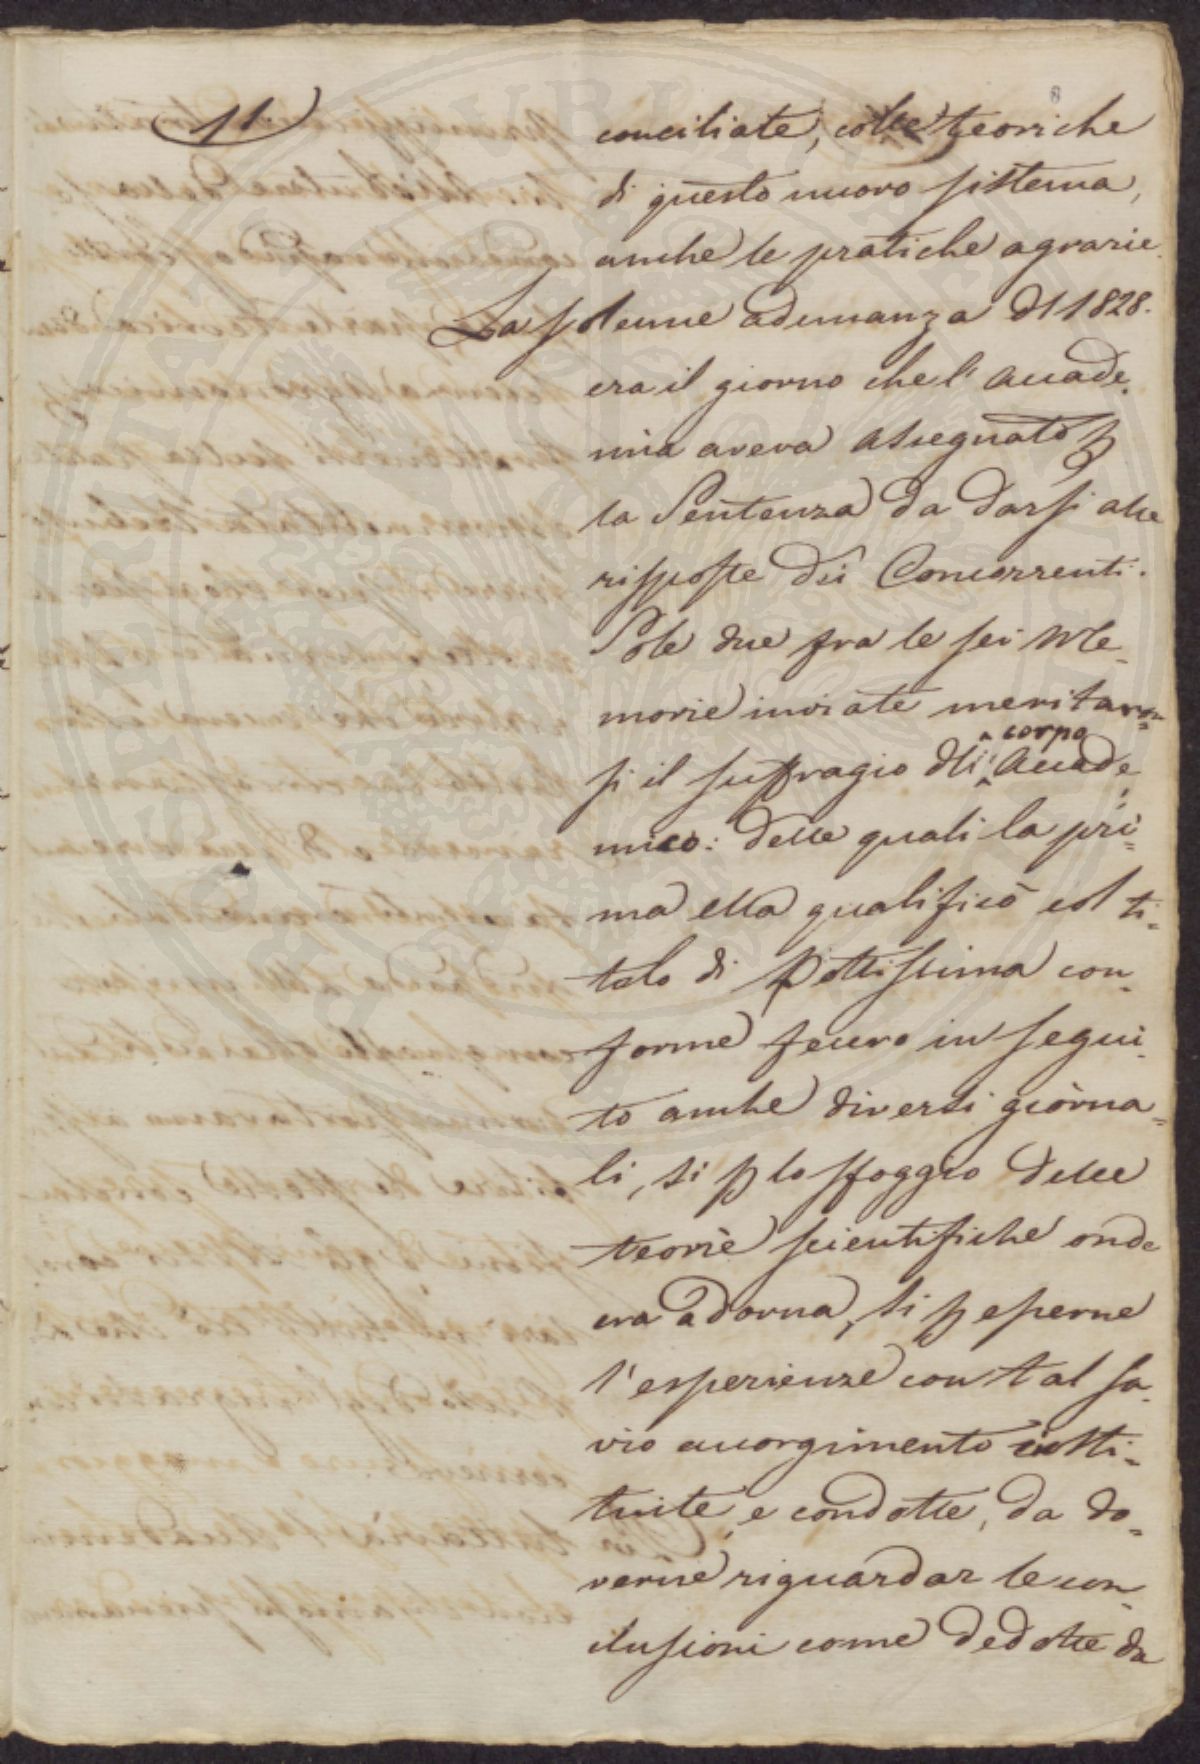 11.
8
conciliate, colle teoriche
di questo nuovo sistema,
anche le pratiche agrarie.
La solenne adunanza dl 1828.
era il giorno che l' Accade-
mia aveva assegnato p
la Sentenza da darsi alle
risposte dei Concorrenti.
Sole due fra le sei Me-
morie inviate meritaron=
corpo
si il suffragio dli Accade-
mico: delle quali la pri=
ma ella qualificò col ti=
tolo di dottissima con-
forme fecero in segui-
to anche diversi giorna=
li, si p lo sfoggio delle
teorie scientifiche onde
era adorna, si p esserne
l'esperienze con tal sa-
vio accorgimento isti=
tuite, e condotte, da do-
verne riguardar le con-
clusioni come dedotte da